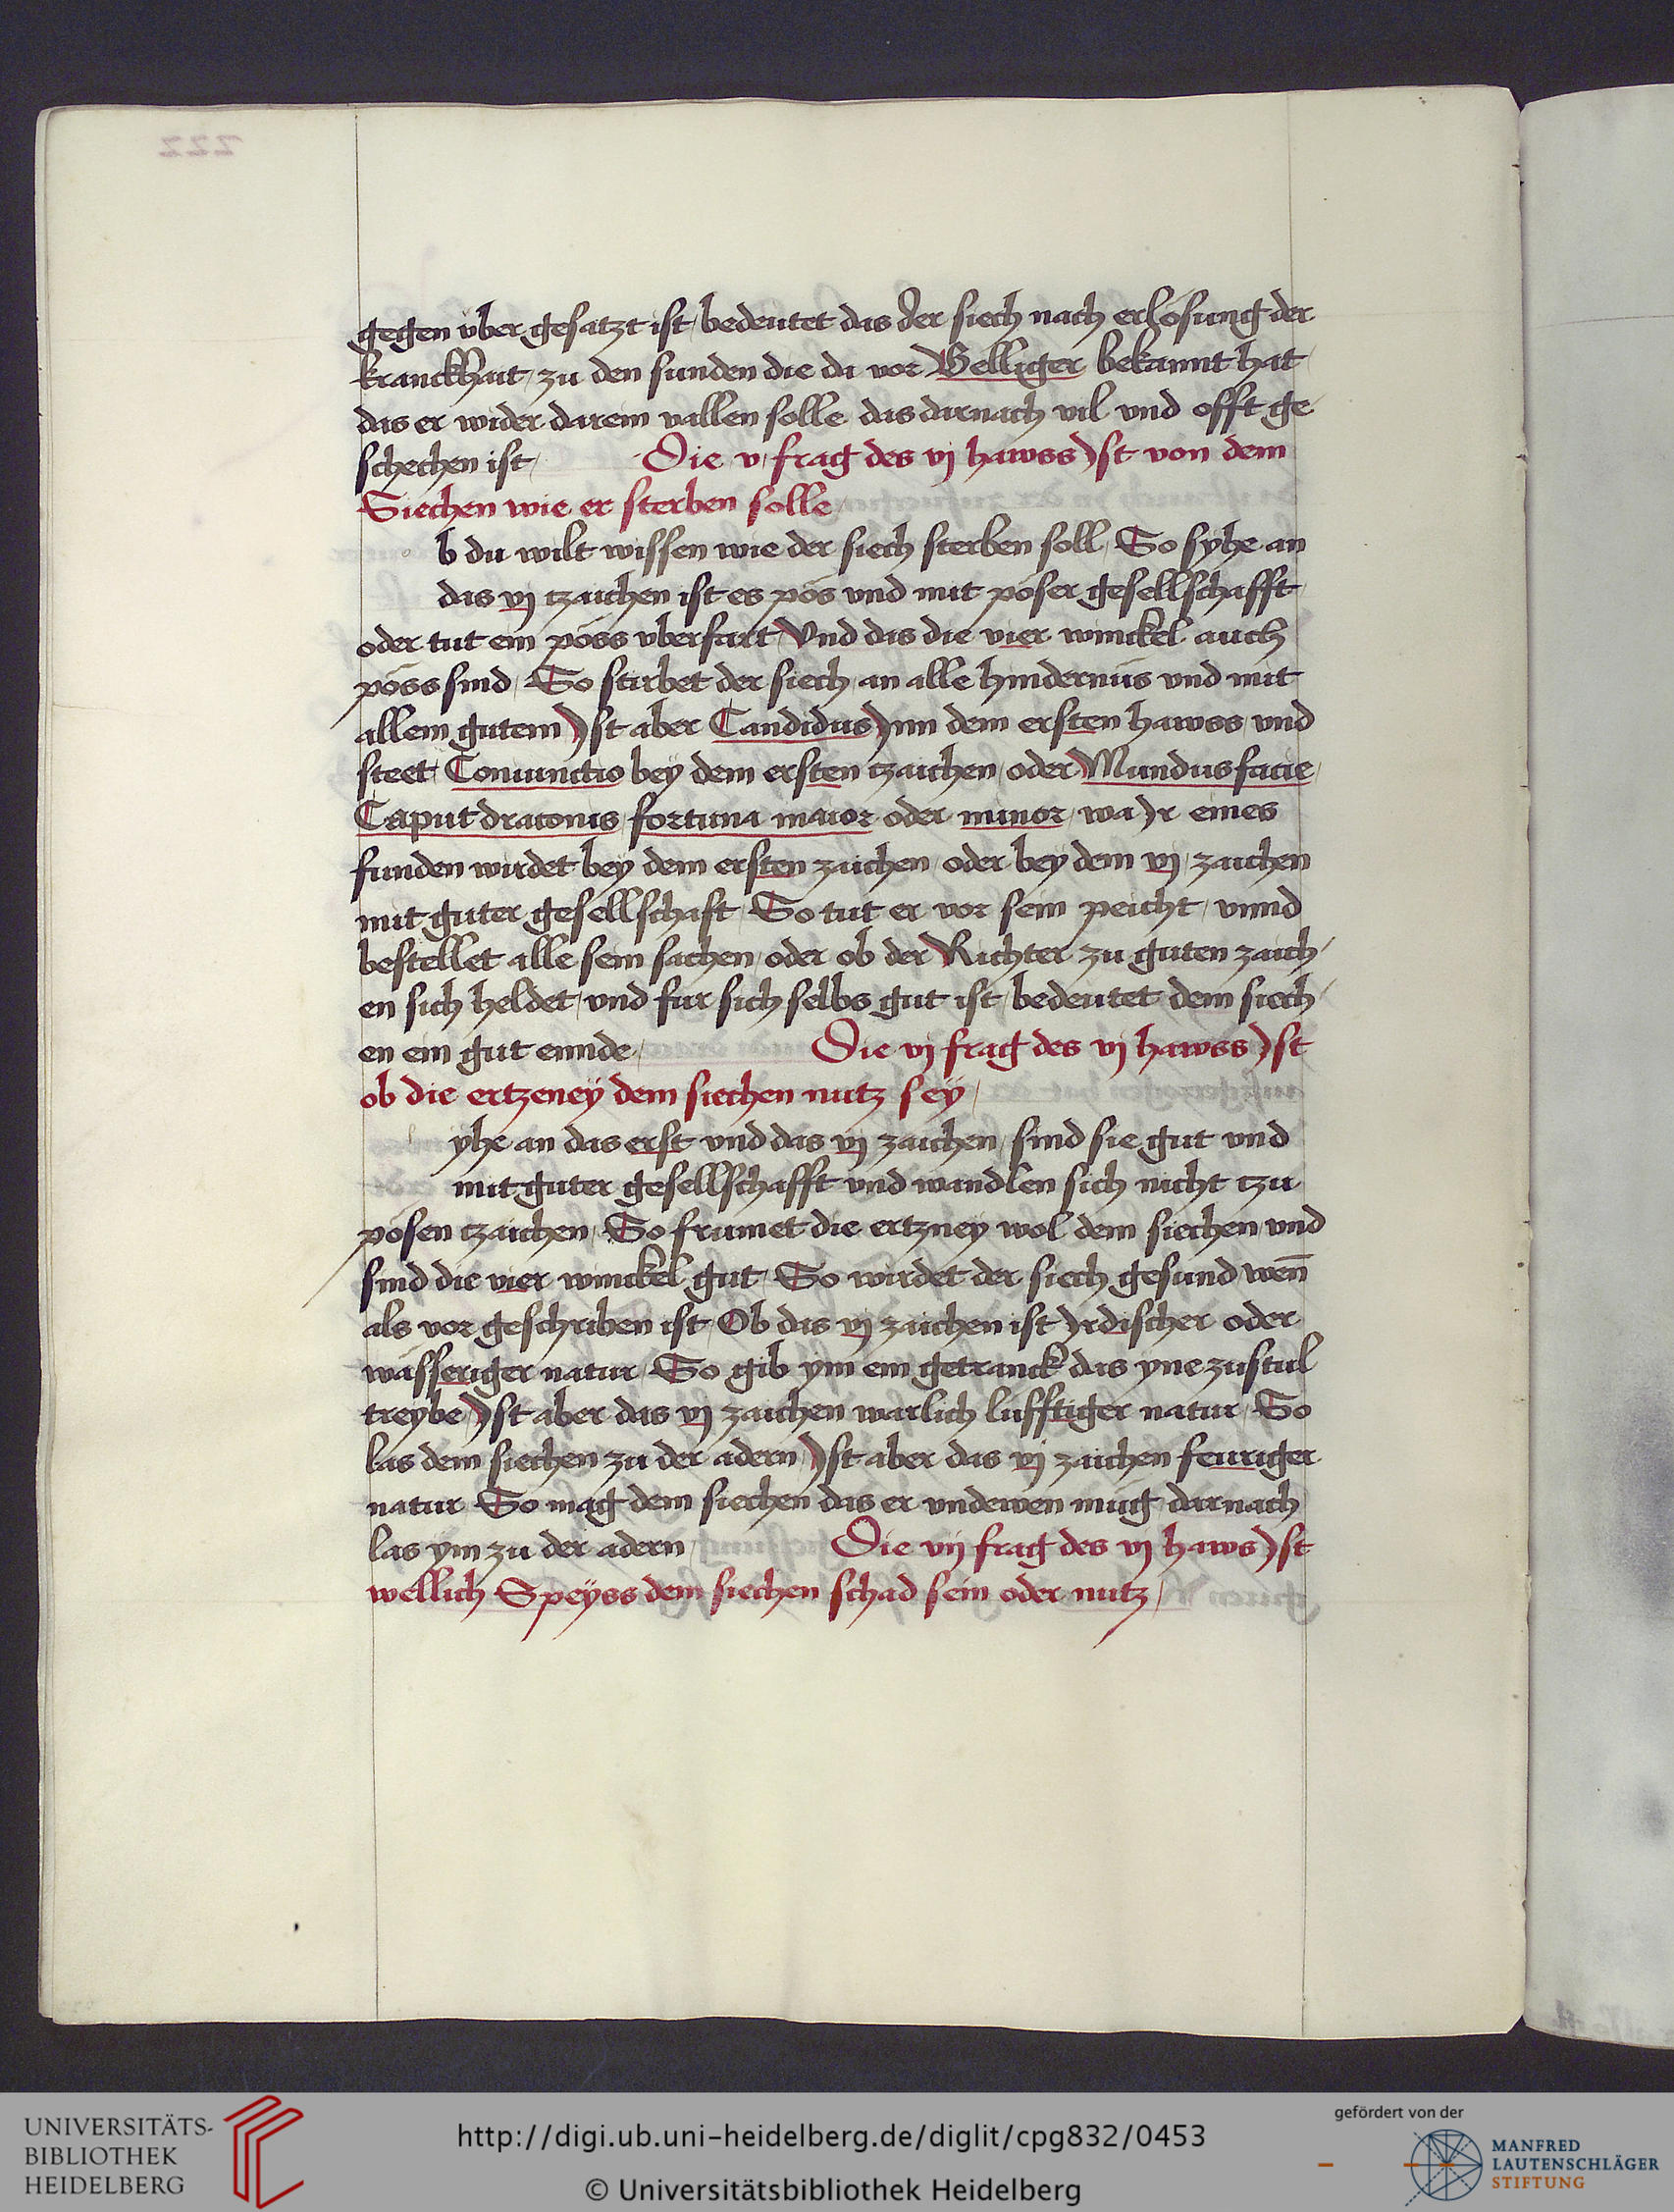 222
gegen vber gesatzt ist / bedeutet das der siech nach erlösung der
kranckhait / zu den sunden die da vor Welliger bekannt hat /
das er wider darein uallen solle das darnach vil vnd offt ge
schechen ist / Die v / frag des vj hawss Ist von dem
Siechen wie er sterben solle /
b du wilt wissen wie der siech sterben soll / So syhe an
das vj tzaichen ist es pös vnd mit pöser gesellschafft /
oder tut ein pöss vberfart / Vnd das die vier winckel auch
pöss sind / So stirbet der siech an alle hindernüs vnd mit
allem gutem / Ist aber Candidus Inn dem ersten hawss vnd
steet Coniunctio bey dem ersten tzaichen / oder Mundus facie /
Caput draconis / fortuna maior oder minor / wa Ir eines
funden wirdet bey dem ersten zaichen oder bey dem vj / zaichen
mit guter gesellschaft / So tut er vor sein peicht / vnnd
bestellet alle sein sachen / oder ob der Richter zu guten zaich /
en sich heldet / vnd fur sich selbs gut ist / bedeutet dem siech /
en ein gut ennde / Die vj frag des vj hawss Ist
ob die ertzeney dem siechen nutz sey /
yhe an das erst vnd das vj zaichen / sind sie gut vnd
mit guter gesellschafft vnd wandlen sich nicht tzu
pösen tzaichen / So frumet die ertzney wol dem siechen vnd
sind die vier winckel gut / So wirdet der siech gesund wen̄
als vor geschriben ist / Ob das vj zaichen ist Irdischer oder
wässeriger natur / So gib ym ein getranck das yne zustul
treybe / Ist aber das vj zaichen warlich lufftiger natur / So
las dem siechen zu der adern / Ist aber das vj zaichen feuriger
natur So mag dem siechen das er vndewen müg darnach
las ym zu der adern / Die vij frag des vj haws Ist
wellich Speyss dem siechen schad sein oder nutz /
UNIVERSITÄTS-
BIBLIOTHEK
HEIDELBERG
http://digi.ub.uni-heidelberg.de/diglit/cpg832/0453
© Universitätsbibliothek Heidelberg
gefördert von der
MANFRED
LAUTENSCHLÄGER
STIFTUNG